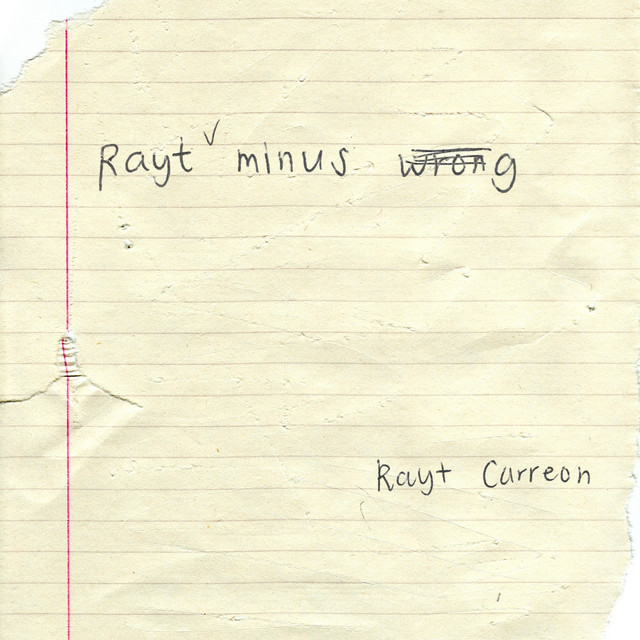 Rayt ✓ minus wrong
Rayt Carreon